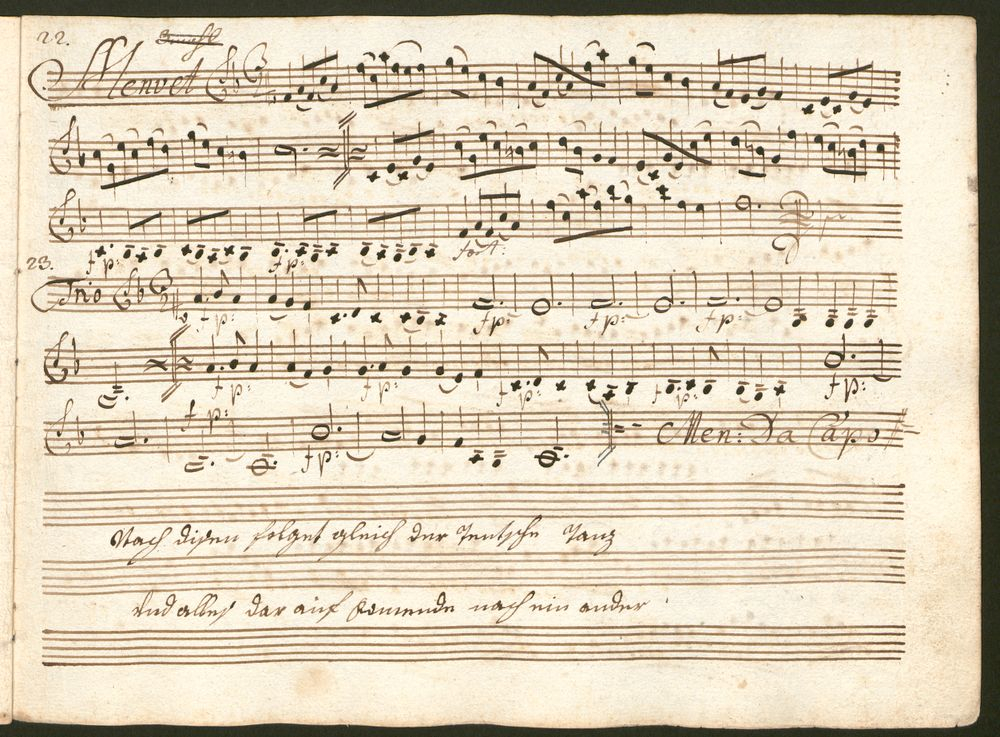 22.
Menuet
fp:
fp:
fort:
23.
Trio
fp:
fp: fp: fp:
fp: fp: fp: fp: fp:
fp:
fp:
Men: Da Capo
Nach disen folget gleich der Teutsche Tanz
Und alles dar auf komende nach ein ander